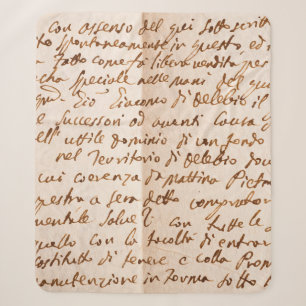 con assenso del qui sottoscritt
to spontaneamente in questo, ed
fatto come fa libera vendita per
che speciale nelle mani del qui
qd. Gio Giacomo di Delebio il
e successori ad aventi causa
ell' utile dominio di un fondo
nel Territorio di Delebio dove
cui coerenza da mattina Pietra
pestra a sera detto compratore
mentale Salve con tutte le
quello con la facoltà di entrar
costituto di tenere e colla Prom
manutenzione in forma sotto